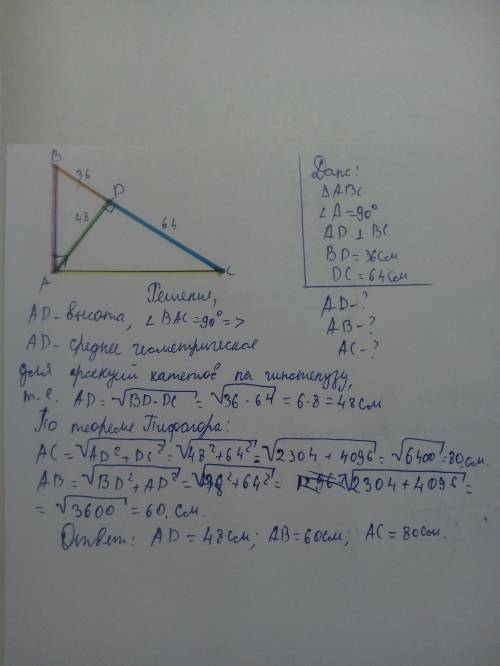 B
36
D
48
64
A
C
Дано:
ΔABC
∠A=90°
AD ⊥ BC
BD=36см
DC=64см
AD-?
AB-?
AC-?
Решения,
AD-высота, ∠BAC=90°=>
AD-среднее геометрическое
для проекций катетов на гипотенузу,
т.е. AD=√BD·DC=√36·64=6·8=48см
По теореме Пифагора:
AC=√AD²+DC²=√48²+64²=√2304+4096=√6400=80см.
AB=√BD²+AD²=√48²+64²= √2304+4096=
=√3600=60.см.
Ответ: AD=48см; AB=60см; AC=80см.